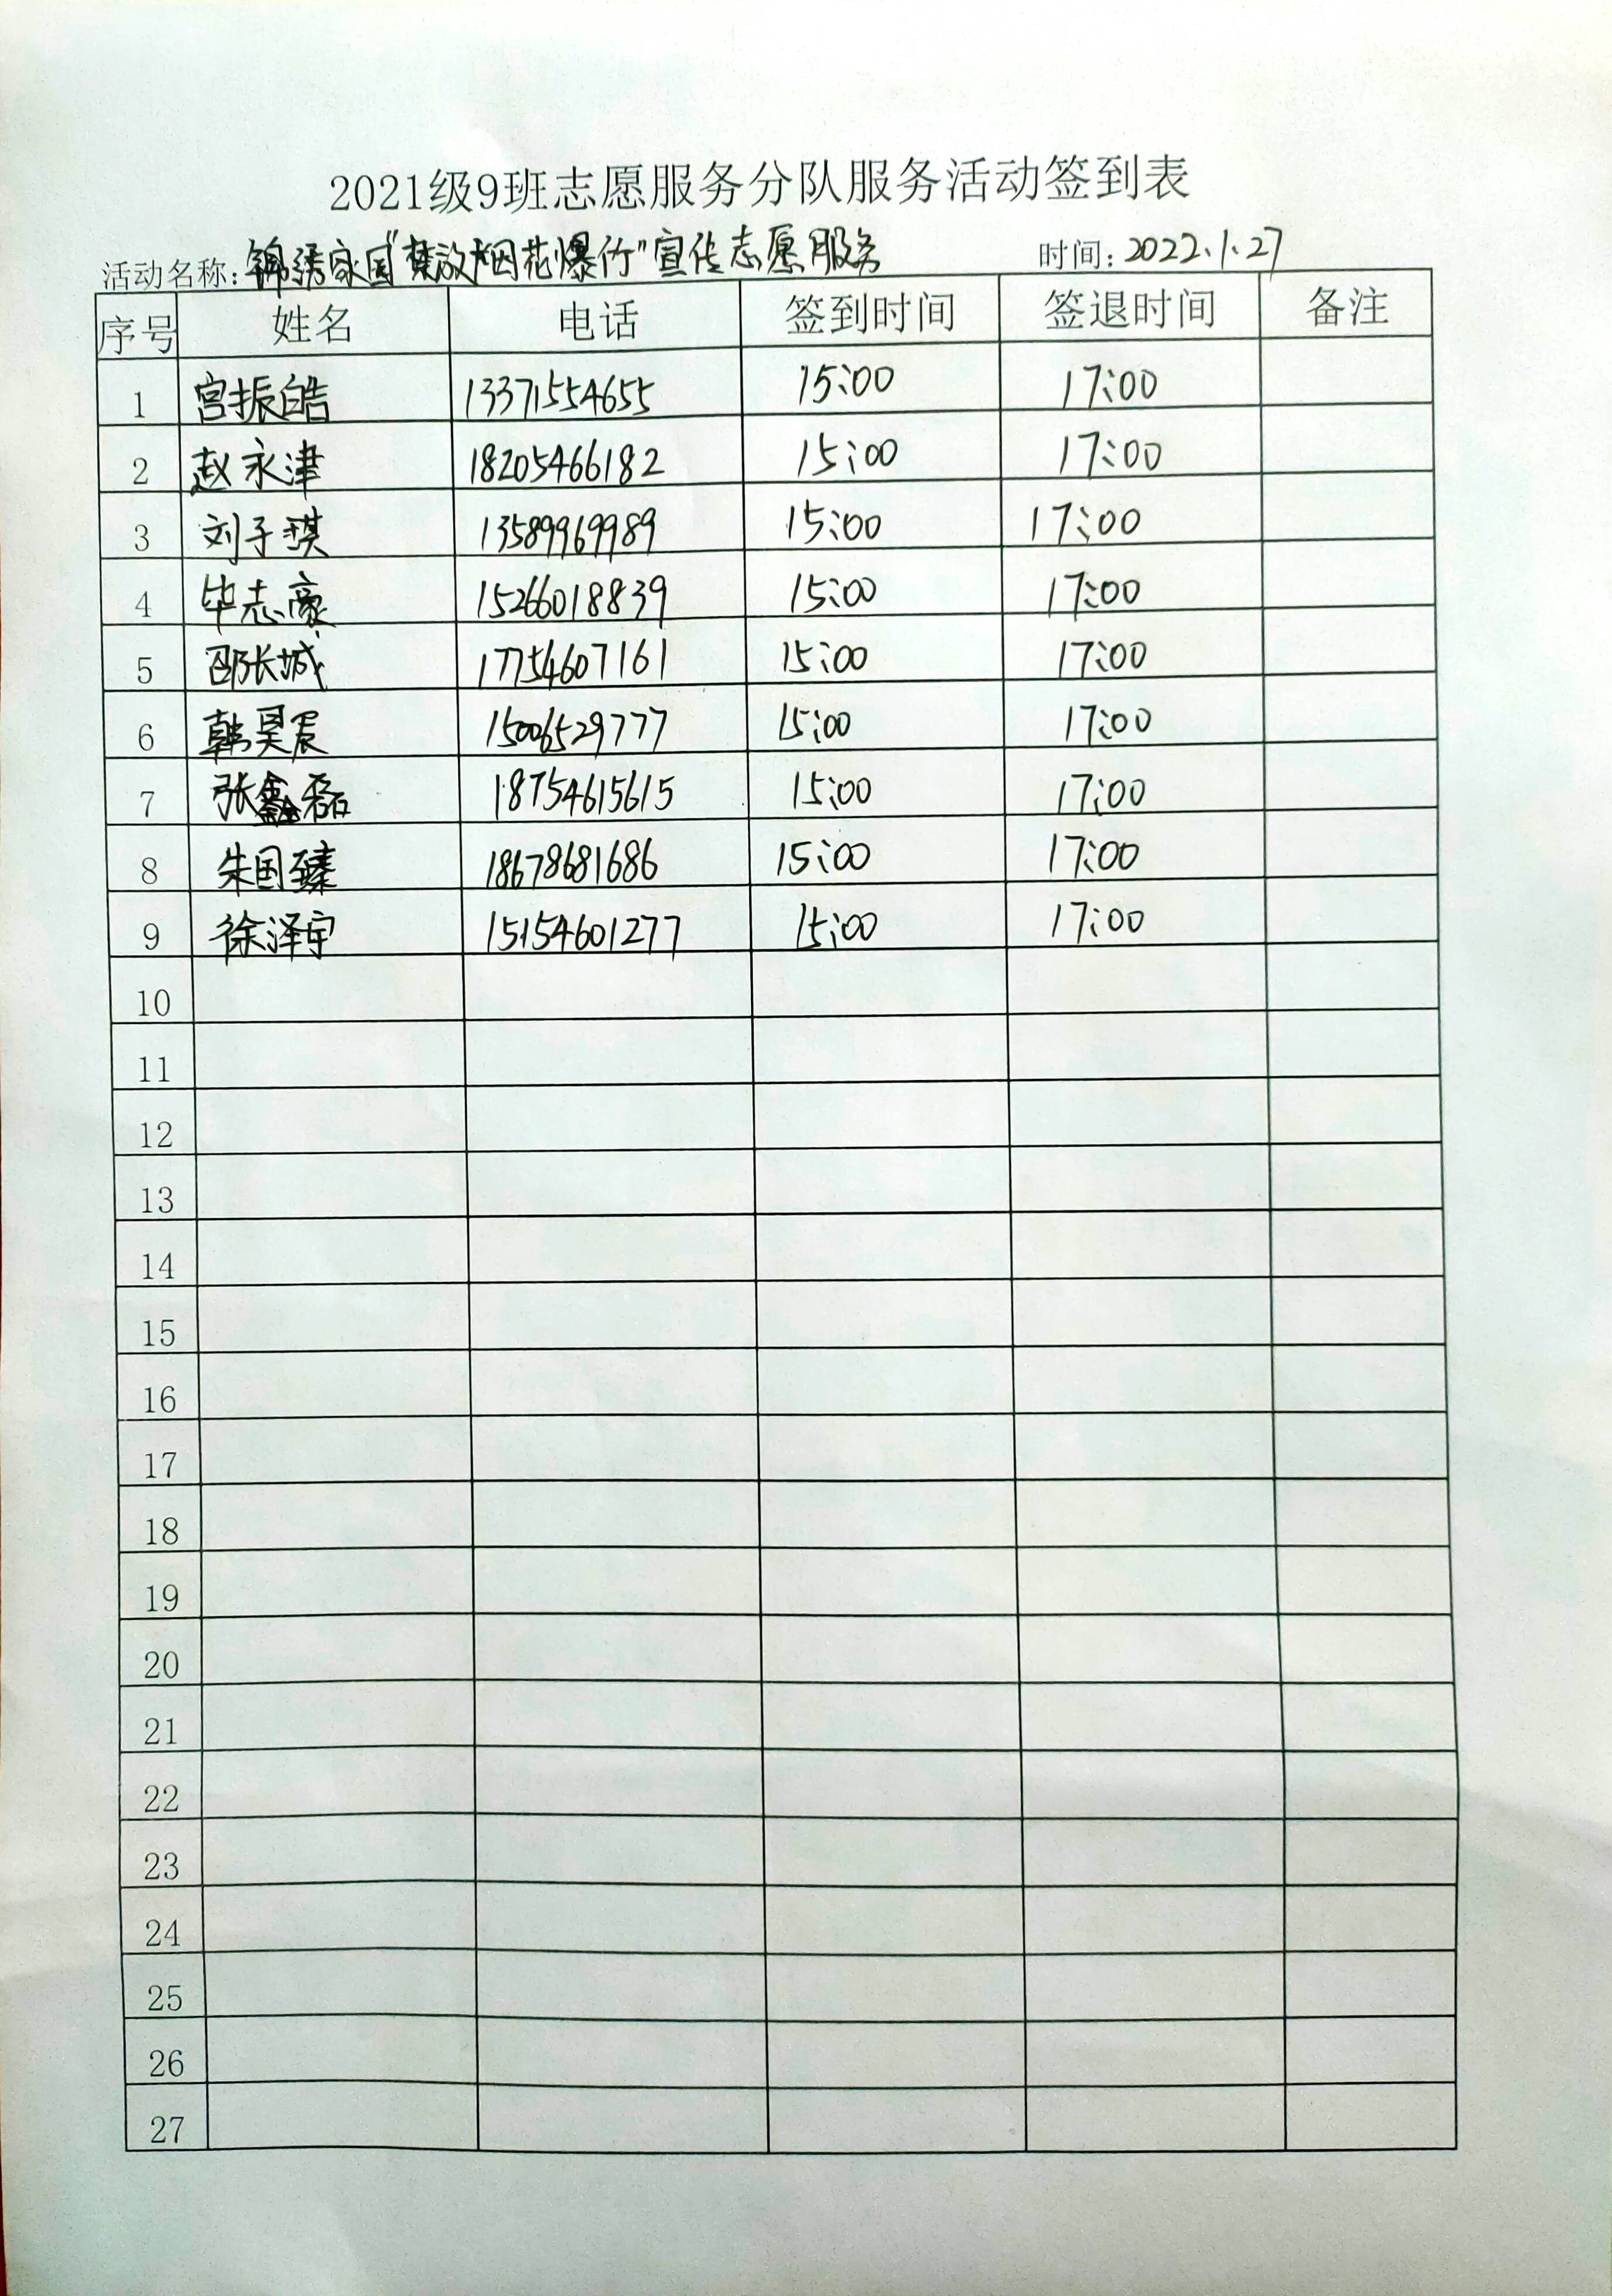 2021级9班志愿服务分队服务活动签到表
活动名称：锦绣家园"禁放烟花爆竹"宣传志愿服务 时间：2022.1.27
序号 姓名 电话 签到时间 签退时间 备注
1 宫振皓 13371554655 15:00 17:00
2 赵永津 18205466182 15:00 17:00
3 刘子琪 13589969989 15:00 17:00
4 毕志豪 15266018839 15:00 17:00
5 邵长城 17754607161 15:00 17:00
6 韩昊宸 15006529777 15:00 17:00
7 张鑫磊 18754615615 15:00 17:00
8 朱国臻 18678681686 15:00 17:00
9 徐泽宇 15154601277 15:00 17:00
10
11
12
13
14
15
16
17
18
19
20
21
22
23
24
25
26
27